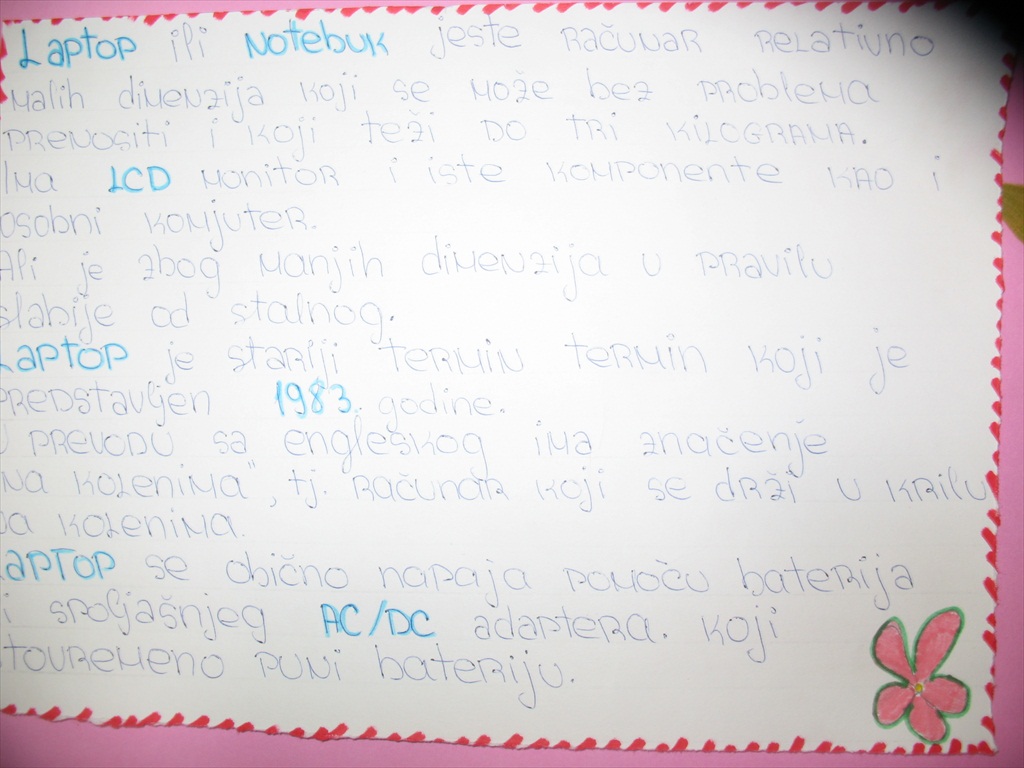 Laptop ili Notebuk jeste računar relativno
malih dimenzija koji se može bez problema
prenositi i koji teži do tri kilograma.
Ima LCD monitor i iste komponente kao i
osobni komjuter.
Ali je zbog manjih dimenzija u pravilu
slabije od stalnog.
Laptop je stariji termin termin koji je
predstavljen 1983. godine.
U prevodu sa engleskog ima značenje
na kolenima", tj. računar koji se drži u krilu
na kolenima.
Laptop se obično napaja pomoću baterija
i spoljašnjeg AC/DC adaptera. koji
tovremeno puni bateriju.